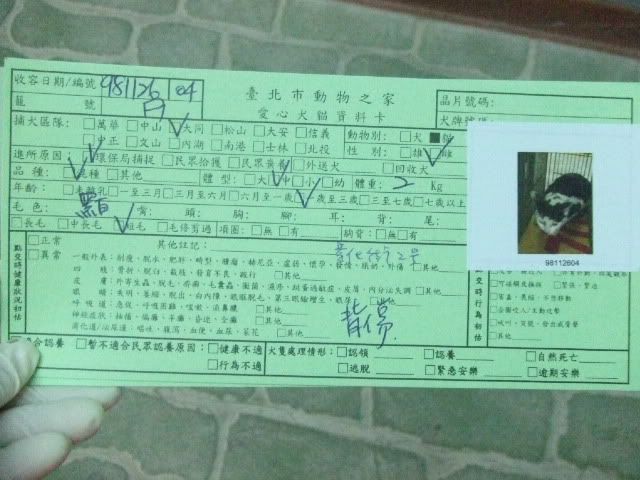 收容日期/編號 981126 04
臺北市動物之家
愛心犬貓資料卡
籠 號
晶片號碼:
犬牌號碼:
捕犬區隊: □萬華 □中山 □大同 □松山 □大安 □信義
動物別: □犬 ■貓
□中正 □文山 □內湖 □南港 □士林 □北投
性 別: □雄 □雌
進所原因: □環保局捕捉 □民眾拾獲 □民眾棄養 □外送犬 □回收犬
品 種: □混種 □其他
體 型: □大 □中 □小 □幼 體重: 2 Kg
年齡: □未離乳 □一至三月 □三月至六月 □六月至一歲 □一歲至三歲 □三至七歲 □七歲以上
毛 色: 黑白 背: 頭: 胸: 腳: 耳: 背: 尾:
□長毛 □中長毛 □短毛 □毛修剪過 項圈: □無 □有 駒背: □無 □有
點交時健康狀況初估
□正常
□異常
其他註記:
一般外表: 削瘦、脫水、肥胖、畸型、腫瘤、赫尼亞、虛弱、懷孕、發情、脹奶、外傷 □其他
四 肢: 骨折、脫臼、截肢、發育不良、跛行 □其他
皮 膚: 外寄生蟲、脫毛、疥癬、毛囊蟲、黴菌、濕疹、跳蚤過敏症、皮屑、內分泌失調 □其他
眼 睛: 失明、萎縮、脫出、白內障、眼瞼脫毛、第三眼瞼增生、眼屎 □其他
呼 吸 道: 急促、呼吸困難、咳嗽、流鼻膿 □其他
神經症狀: 抽搐、偏癱、半癱、昏迷、全癱 □其他
消化道/泌尿道: 嘔吐、腹瀉、血便、血尿、茶尿 □其他
背傷
點交時行為初估
□其他
98112604
□適合認養 □暫不適合民眾認養原因: □健康不適
□行為不適
犬隻處理情形: □認領 □認養 □自然死亡
□逃脫 □緊急安樂 □逾期安樂